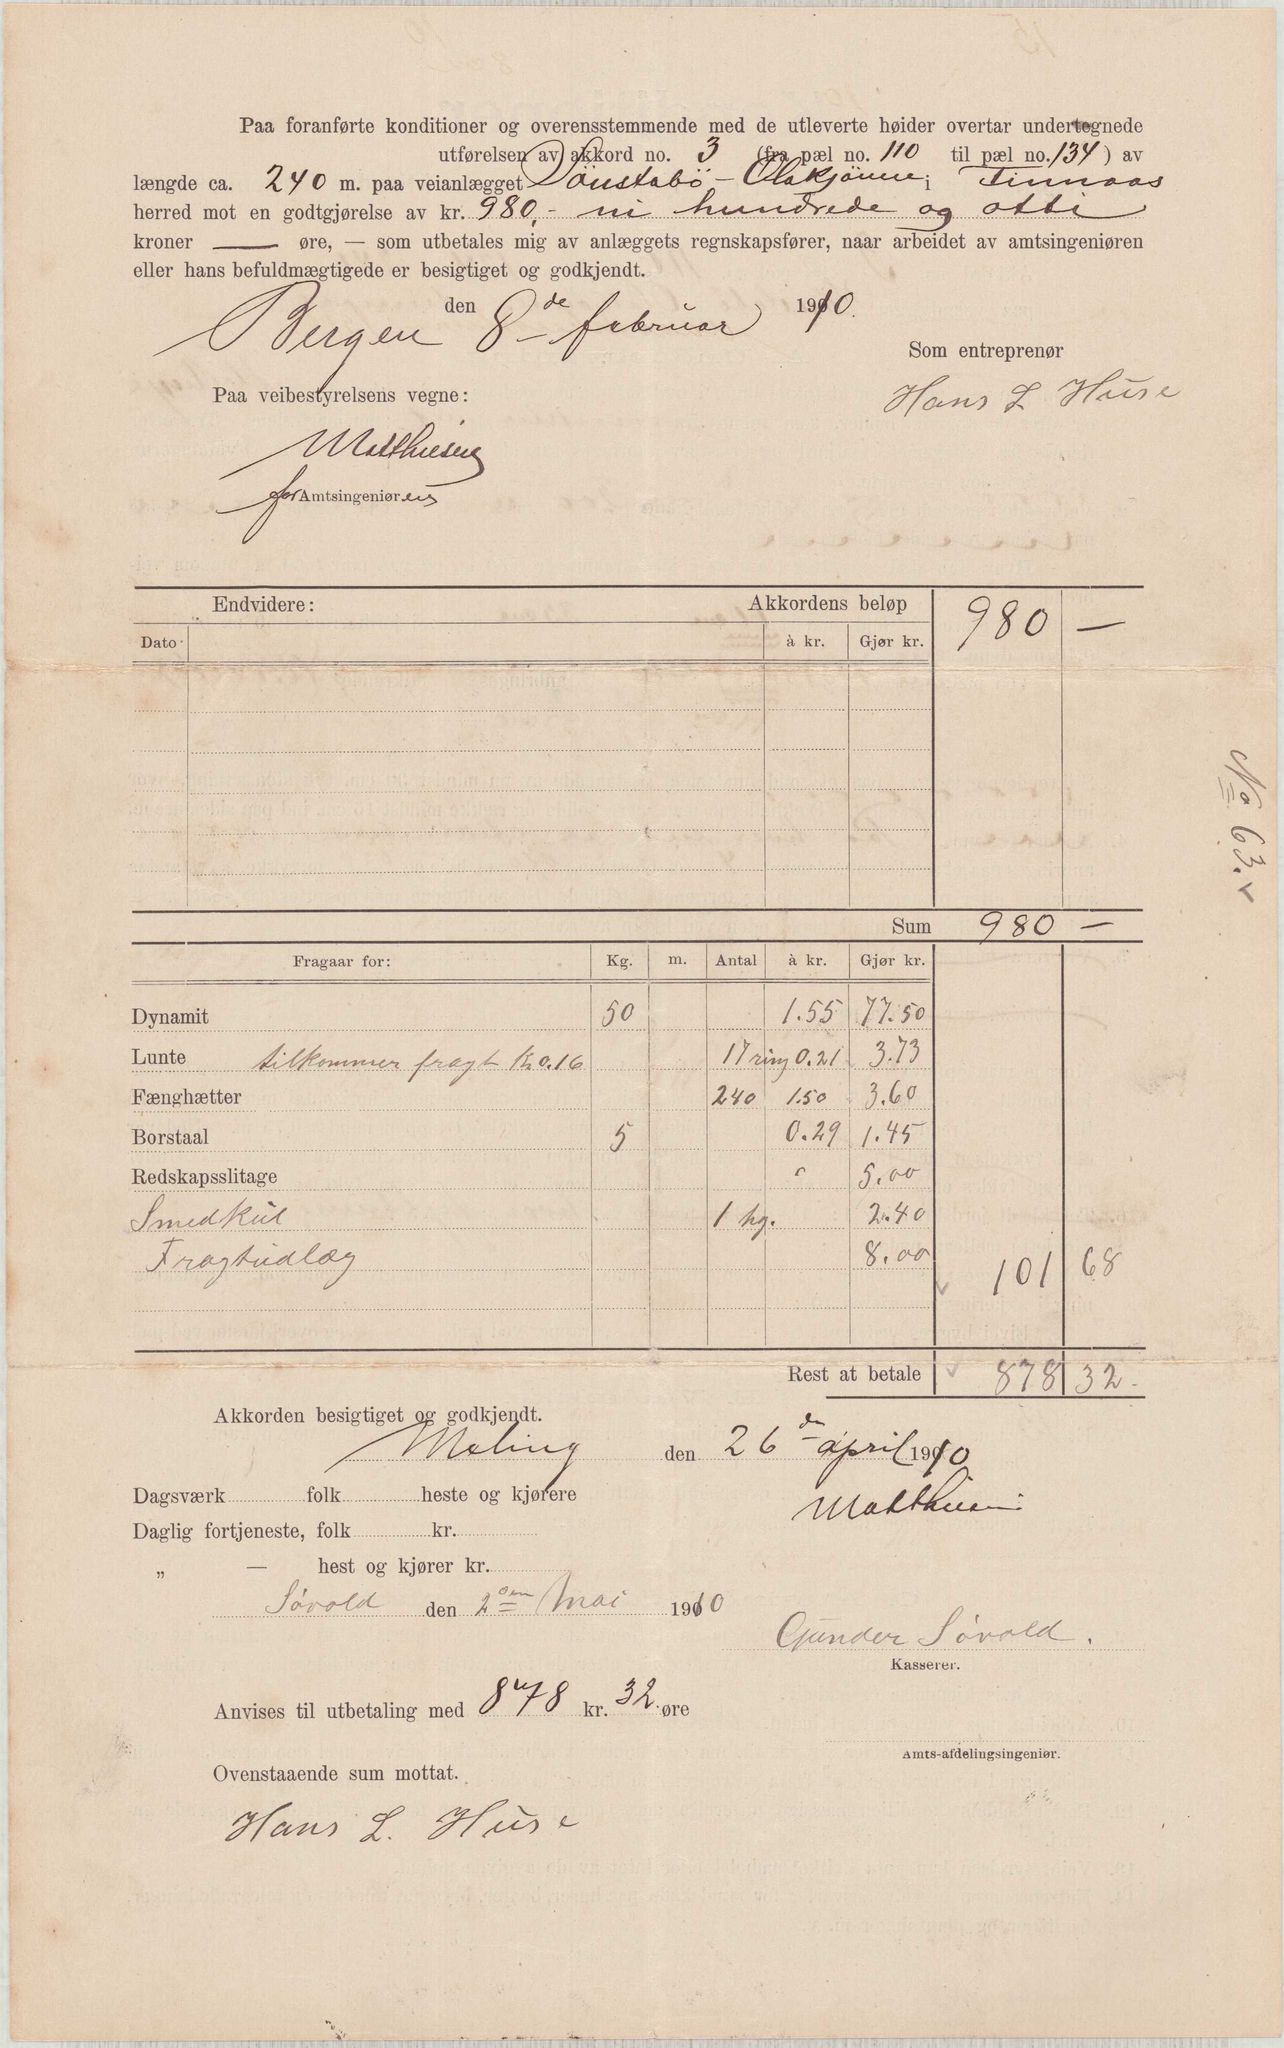 Paa foranførte konditioner og overensstemmende med de utleverte høider overtar undertegnede
utførelsen av akkord no. 3 (fra pæl no. 110 til pæl no. 134) av
længde ca. 240 m. paa veianlægget i Finnaas
herred mot en godtgjørelse av kr. 980,- ni hundrede og otti
kroner — øre, — som utbetales mig av anlæggets regnskapsfører, naar arbeidet av amtsingeniøren
eller hans befuldmægtigede er besigtiget og godkjendt.
Bergen den 8de februar 1910.
Som entreprenør
Hans L Huse
Paa veibestyrelsens vegne:
Matthiesen
for Amtsingeniøren
Endvidere: Akkordens beløp 980 —
Dato à kr. Gjør kr.
Sum 980 —
Fragaar for: Kg. m. Antal à kr. Gjør kr.
Dynamit 50 1.55 77.50
Lunte tilkommer fragt Kr 0.16 17 ring 0.21 3.73
Fænghætter 240 1.50 3.60
Borstaal 5 0.29 1.45
Redskapsslitage " 5.00
Smedkul 1 hg. 2.40
Fragtudlæg 8.00 101 68
Rest at betale 878 32.
No 63.
Akkorden besigtiget og godkjendt.
Meling den 26de april 1910
Matthiesen
Dagsværk folk heste og kjørere
Daglig fortjeneste, folk kr.
„ — hest og kjører kr.
Søvold den 2den Mai 1910
Gunder Søvold.
Kasserer.
Anvises til utbetaling med 878 kr. 32 øre
Amts-afdelingsingeniør.
Ovenstaaende sum mottat.
Hans L. Huse